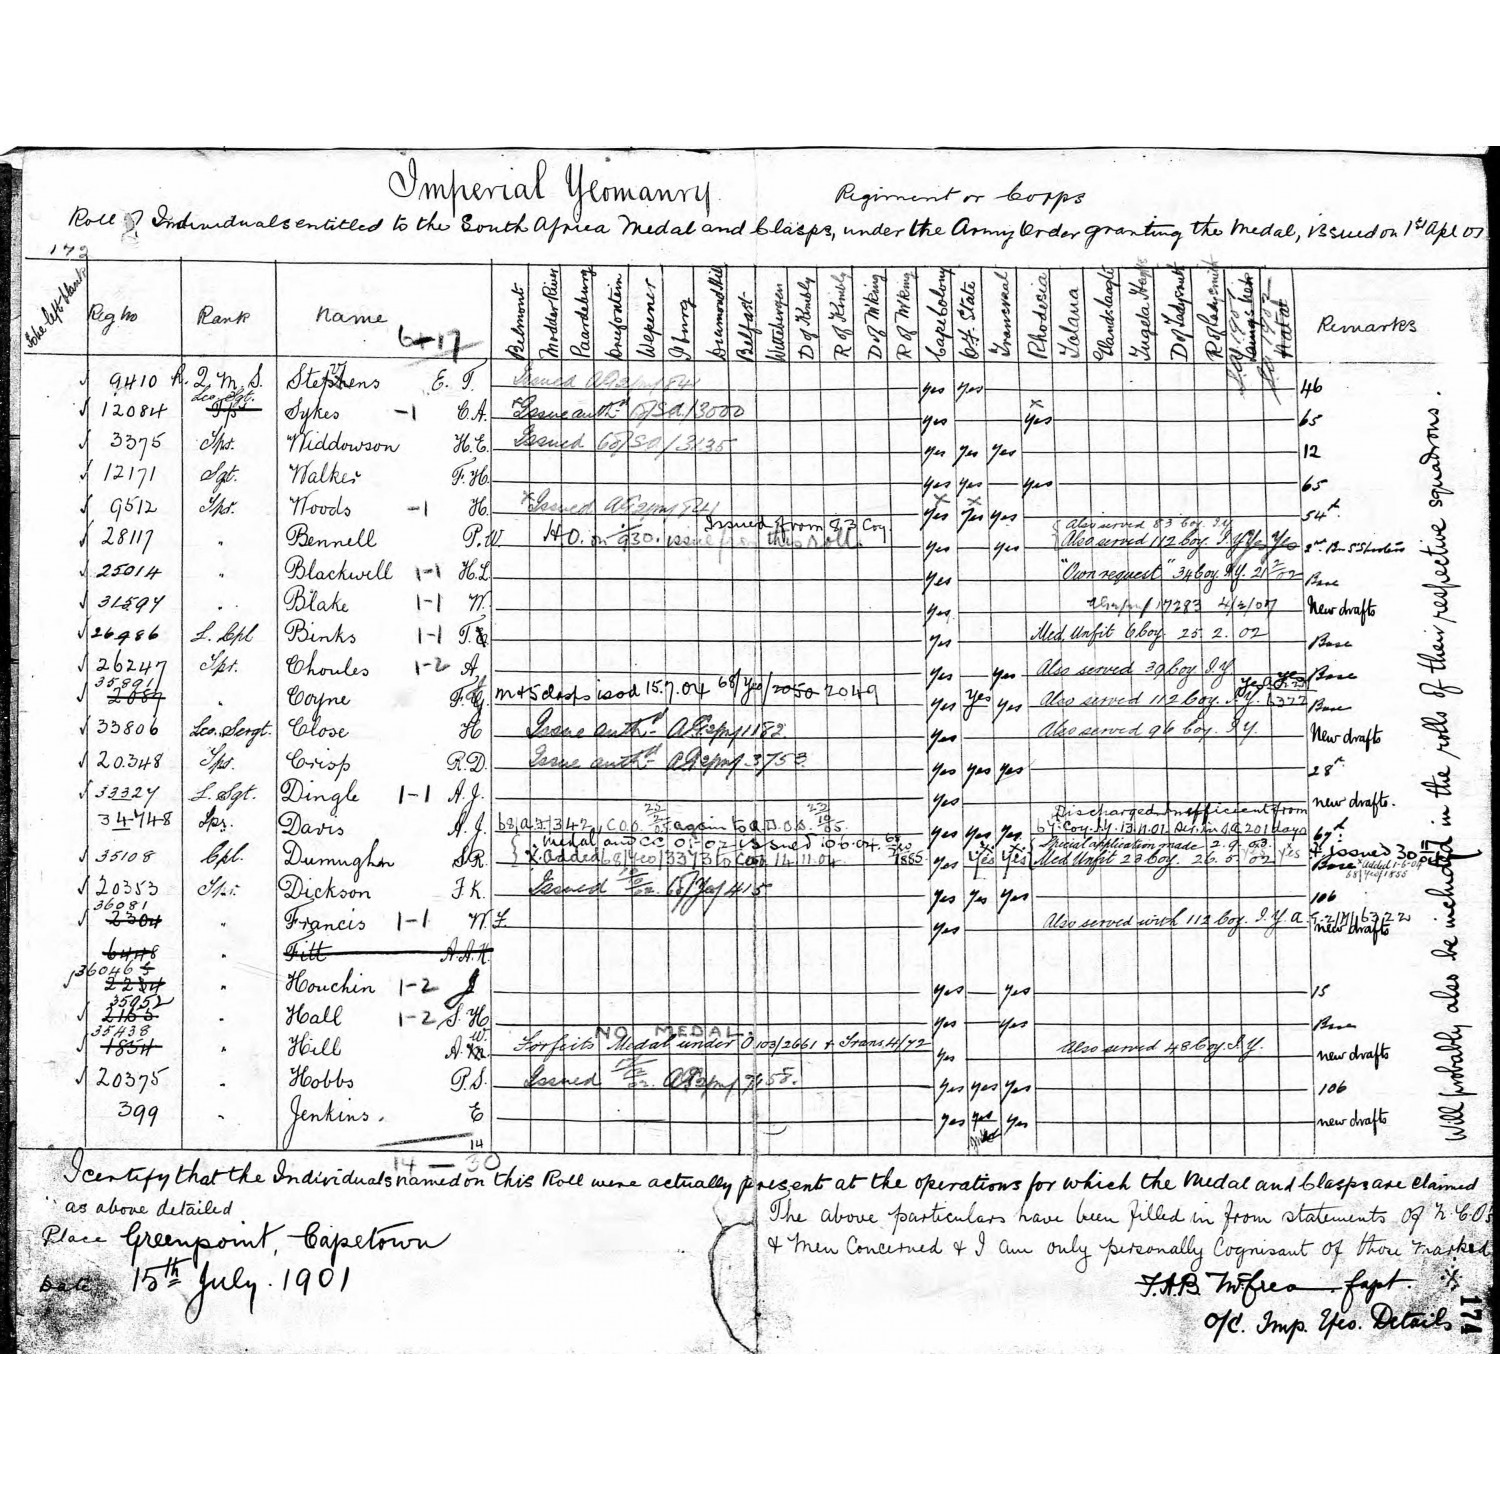 Imperial Yeomanry. Regiment or Corps
Roll of Individuals entitled to the South Africa Medal and Clasps, under the Army Order granting the Medal, issued on 1st Apl 01
172
Reg No Rank Name 6+17 Belmont Modder River Paardeburg Driefontein Wepener Johannesburg Diamond Hill Belfast Wittebergen D of Kimbly R of Kimbly D of Mking R of Mking Cape Colony O.F. State Transvaal Rhodesia Talana Elandslaagte Tugela Heights D of Ladysmith R of Ladysmith Laings Nek Natal Remarks
9410 R. Q. M. S. Stephens E. T. Issued yes yes 46
12084 Lce Sgt. Sykes -1 C. A. Issue authd 68/S.A./3000 yes yes 65
3375 Tpr. Widdowson H. E. Issued 68/SO/3135 yes yes yes 12
12171 Sgt. Walker F. H. yes yes yes 65
9512 Tpr. Woods -1 H. Issued yes yes yes 54th
28117 " Bennell P. W Issued from 83 Coy. issue from this roll. yes yes Also served 83 Coy. I.Y. Also served 112 Coy. I.Y. yes yes
25014 " Blackwell 1-1 H. L yes "Own request" 34 Coy. I.Y. Base
31597 " Blake 1-1 W. yes 17283 4/3/07 New drafts
26986 L. Cpl Binks 1-1 T. yes Med. Unfit 6 Coy 25. 2. 02 Base
26247 Tpr. Choules 1-2 A. yes yes Also served 39 Coy I.Y Base
35891 2087 " Coyne F. G. M+5 clasps issd 15.7.04 68/Yeo/2050 2049 yes yes yes Also served 112 Coy. I.Y. Base
33806 Lce. Sergt. Close H Issue authd AG2pm/1182. yes Also served 96 Coy. I.Y. New drafts
20348 Tpr. Crisp R. D. Issue authd AG2pm/3753 yes yes yes 28th
33327 L. Sgt. Dingle 1-1 A. J. yes new drafts.
34748 Tpr. Davis A. J. yes yes yes Discharged Inefficient from 67 Coy. I.Y. 13.11.01 201 days 67th
35108 Cpl. Durnughan S. R. Medal and CC 01-02 issued 10.6.04. 68/Yeo/1855 X Added 68/Yeo/3373 14.11.04 yes yes yes Special application made 2.9.03 Med Unfit 23 Coy. 26.5.02 yes + issued 30 Base
20353 Tpr. Dickson F. K. Issued 68/Yeo/415 yes yes yes 106
36081 2304 " Francis 1-1 W. F. yes Also served with 112 Coy. I.Y. new drafts
6448 " Fitt A. A. H.
36046 2234 " Houchin 1-2 J yes yes 15
35952 2165 " Hall 1-2 S. H. yes yes Base
35438 1834 " Hill A. W. NO MEDAL. Forfeits Medal under 0103/2661 + Trans 4/72 yes Also served 48 Coy I.Y. new drafts
20375 " Hobbs P. S. Issued yes yes yes 106
399 " Jenkins. E yes yes yes new drafts
14
14 — 30
Will probably also be included in the rolls of their respective squadrons.
I certify that the Individuals named on this Roll were actually present at the operations for which the Medal and Clasps are claimed
as above detailed
Place Greenpoint, Capetown
Date 15th July. 1901
The above particulars have been filled in from statements of N.C.O's
& Men Concerned & I am only personally Cognisant of those marked X
Capt.
O/C. Imp. Yeo. Details
174